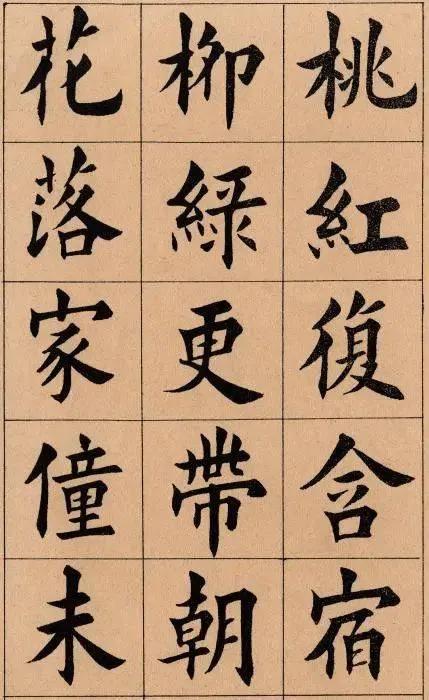 桃紅復含宿
柳綠更帶朝
花落家僮未